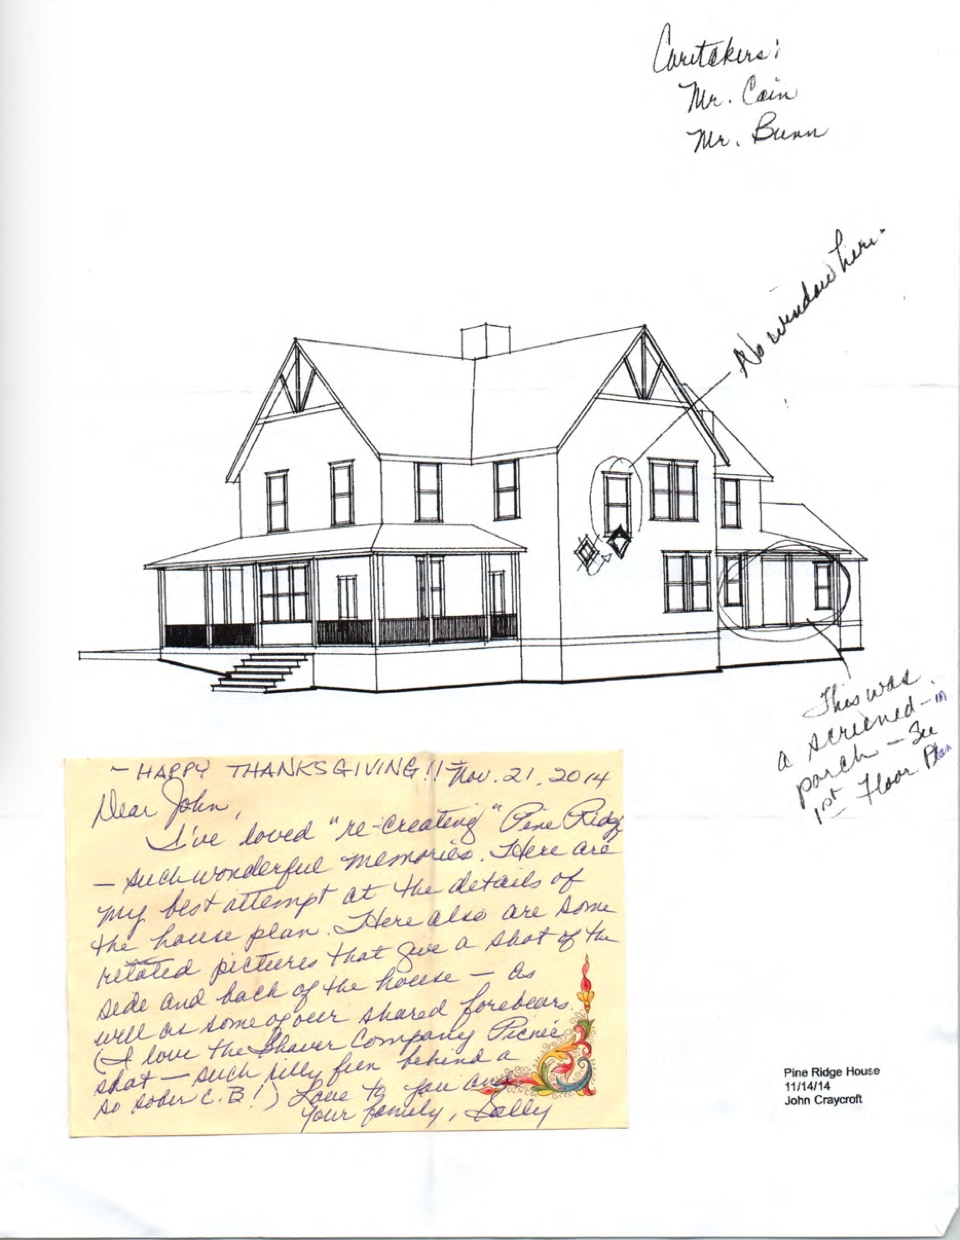 Caretakers:
Mr. Cain
Mr. Bunn
No window here.
This was
a screened-in
porch - See
1st Floor Plan
- HAPPY THANKSGIVING!! - Nov. 21, 2014
Dear John,
I've loved "re-creating" Pine Ridge
- such wonderful memories. Here are
my best attempt at the details of
the house plan. Here also are some
related pictures that give a shot of the
side and back of the house - as
well as some of our shared forebears.
(I love the Shaver Company Picnic
shot - such silly fun behind a
so sober C.B.!) Love to you and
your family, Sally
Pine Ridge House
11/14/14
John Craycroft